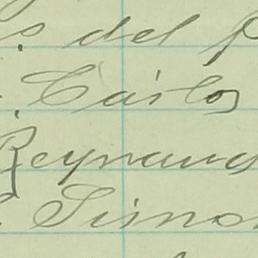 s del
Cárlos
Reynaud
Simo